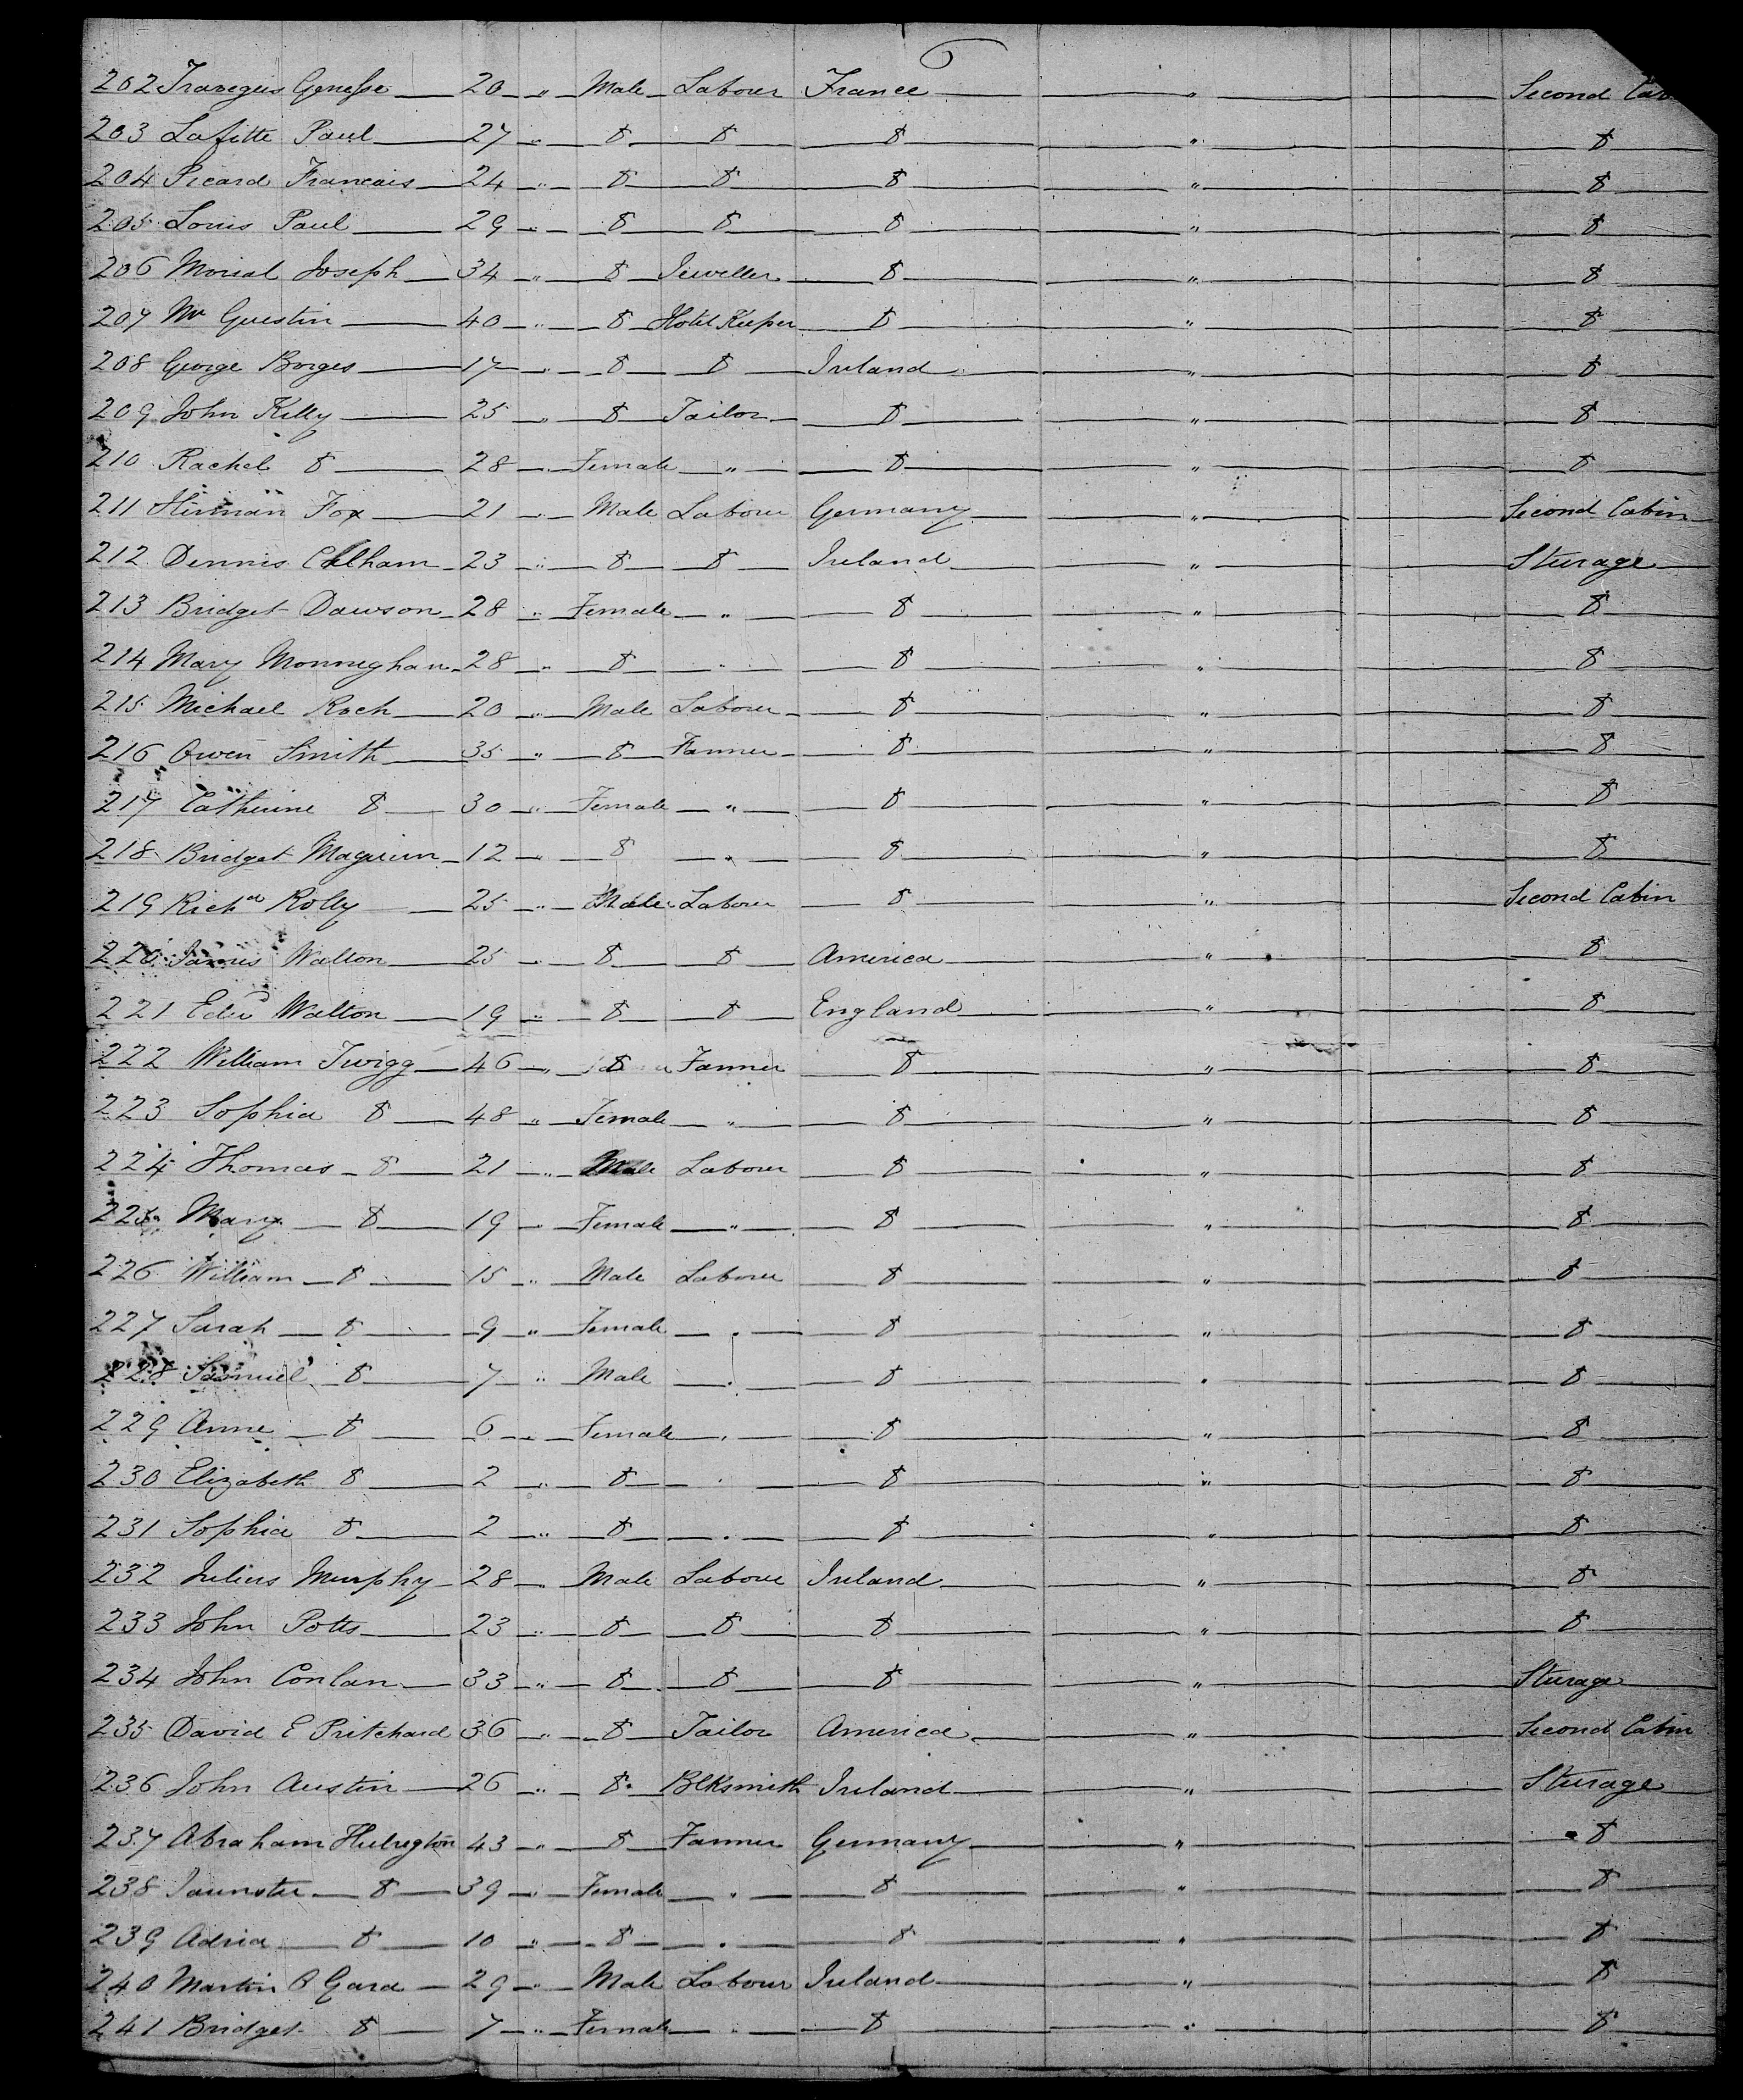 6
202 Genesse 20 " Male Labour France " Second Cab
203 Lafitte Paul 27 " Do Do Do " Do
204 Picard Francais 24 " Do Do Do " Do
205 Louis Paul 29 " Do Do Do " Do
206 Morial Joseph 34 " Do Jeweller Do " Do
207 Mr Guestin 40 " Do Hotel Keeper Do " Do
208 George Borges 17 " Do Do Ireland " Do
209 John Kelly 25 " Do Tailor Do " Do
210 Rachel Do 28 " Female " Do " Do
211 Hirman Fox 21 " Male Labour Germany " Second Cabin
212 Dennis 23 " Do Do Ireland " Sturage
213 Bridget Dawson 28 " Female " Do " Do
214 Mary Monneghan 28 " Do " Do " Do
215 Michael Roch 20 " Male Labour Do " Do
216 Owen Smith 35 " Do Farmer Do " Do
217 Catherine Do 30 " Female " Do " Do
218 Bridget 12 " Do " Do " Do
219 Richd Rolly 25 " Male Labour Do " Second Cabin
220 James Walton 25 " Do Do America " Do
221 Edwd Walton 19 " Do Do England " Do
222 William Twigg 46 " Do Farmer Do " Do
223 Sophia Do 48 " Female " Do " Do
224 Thomas Do 21 " Male Labour Do " Do
225 Mary Do 19 " Female " Do " Do
226 William Do 15 " Male Labour Do " Do
227 Sarah Do 9 " Female " Do " Do
228 Samuel Do 7 " Male " Do " Do
229 Anne Do 6 " Female " Do " Do
230 Elizabeth Do 2 " Do " Do " Do
231 Sophia Do 2 " Do " Do " Do
232 Julius Murphy 28 " Male Labour Ireland " Do
233 John Potts 23 " Do Do Do " Do
234 John Conlan 33 " Do Do Do " Sturage
235 David E Pritchard 36 " Do Tailor America " Second Cabin
236 John Austin 26 " Do Blksmith Ireland " Sturage
237 Abraham 43 " Do Farmer Germany " Do
238 Do 39 " Female " Do " Do
239 Adria Do 10 " Do " Do " Do
240 Martin O Gara 29 " Male Labour Ireland " Do
241 Bridget Do 7 " Female " Do " Do